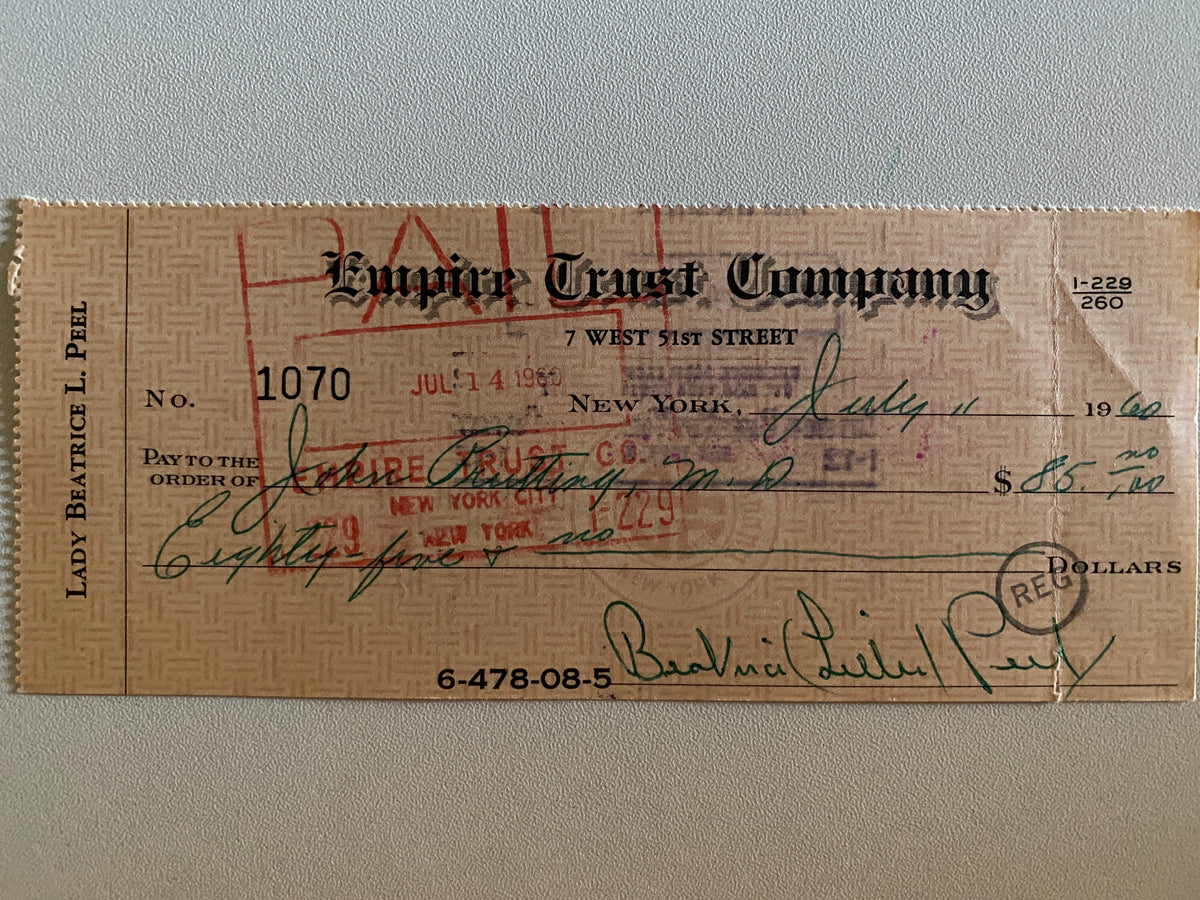 LADY BEATRICE L. PEEL
PAID
Empire Trust Company
1-229
260
7 WEST 51ST STREET
No. 1070
JUL 14 1960
NEW YORK, July 11 1960
PAY TO THE
ORDER OF John Prutting, M.D. $ 85. no/100
EMPIRE TRUST CO.
NEW YORK CITY
NEW YORK
1-229
Eighty-five & no DOLLARS
NEW YORK
REG
6-478-08-5 Beatrice (Lillie) Peel